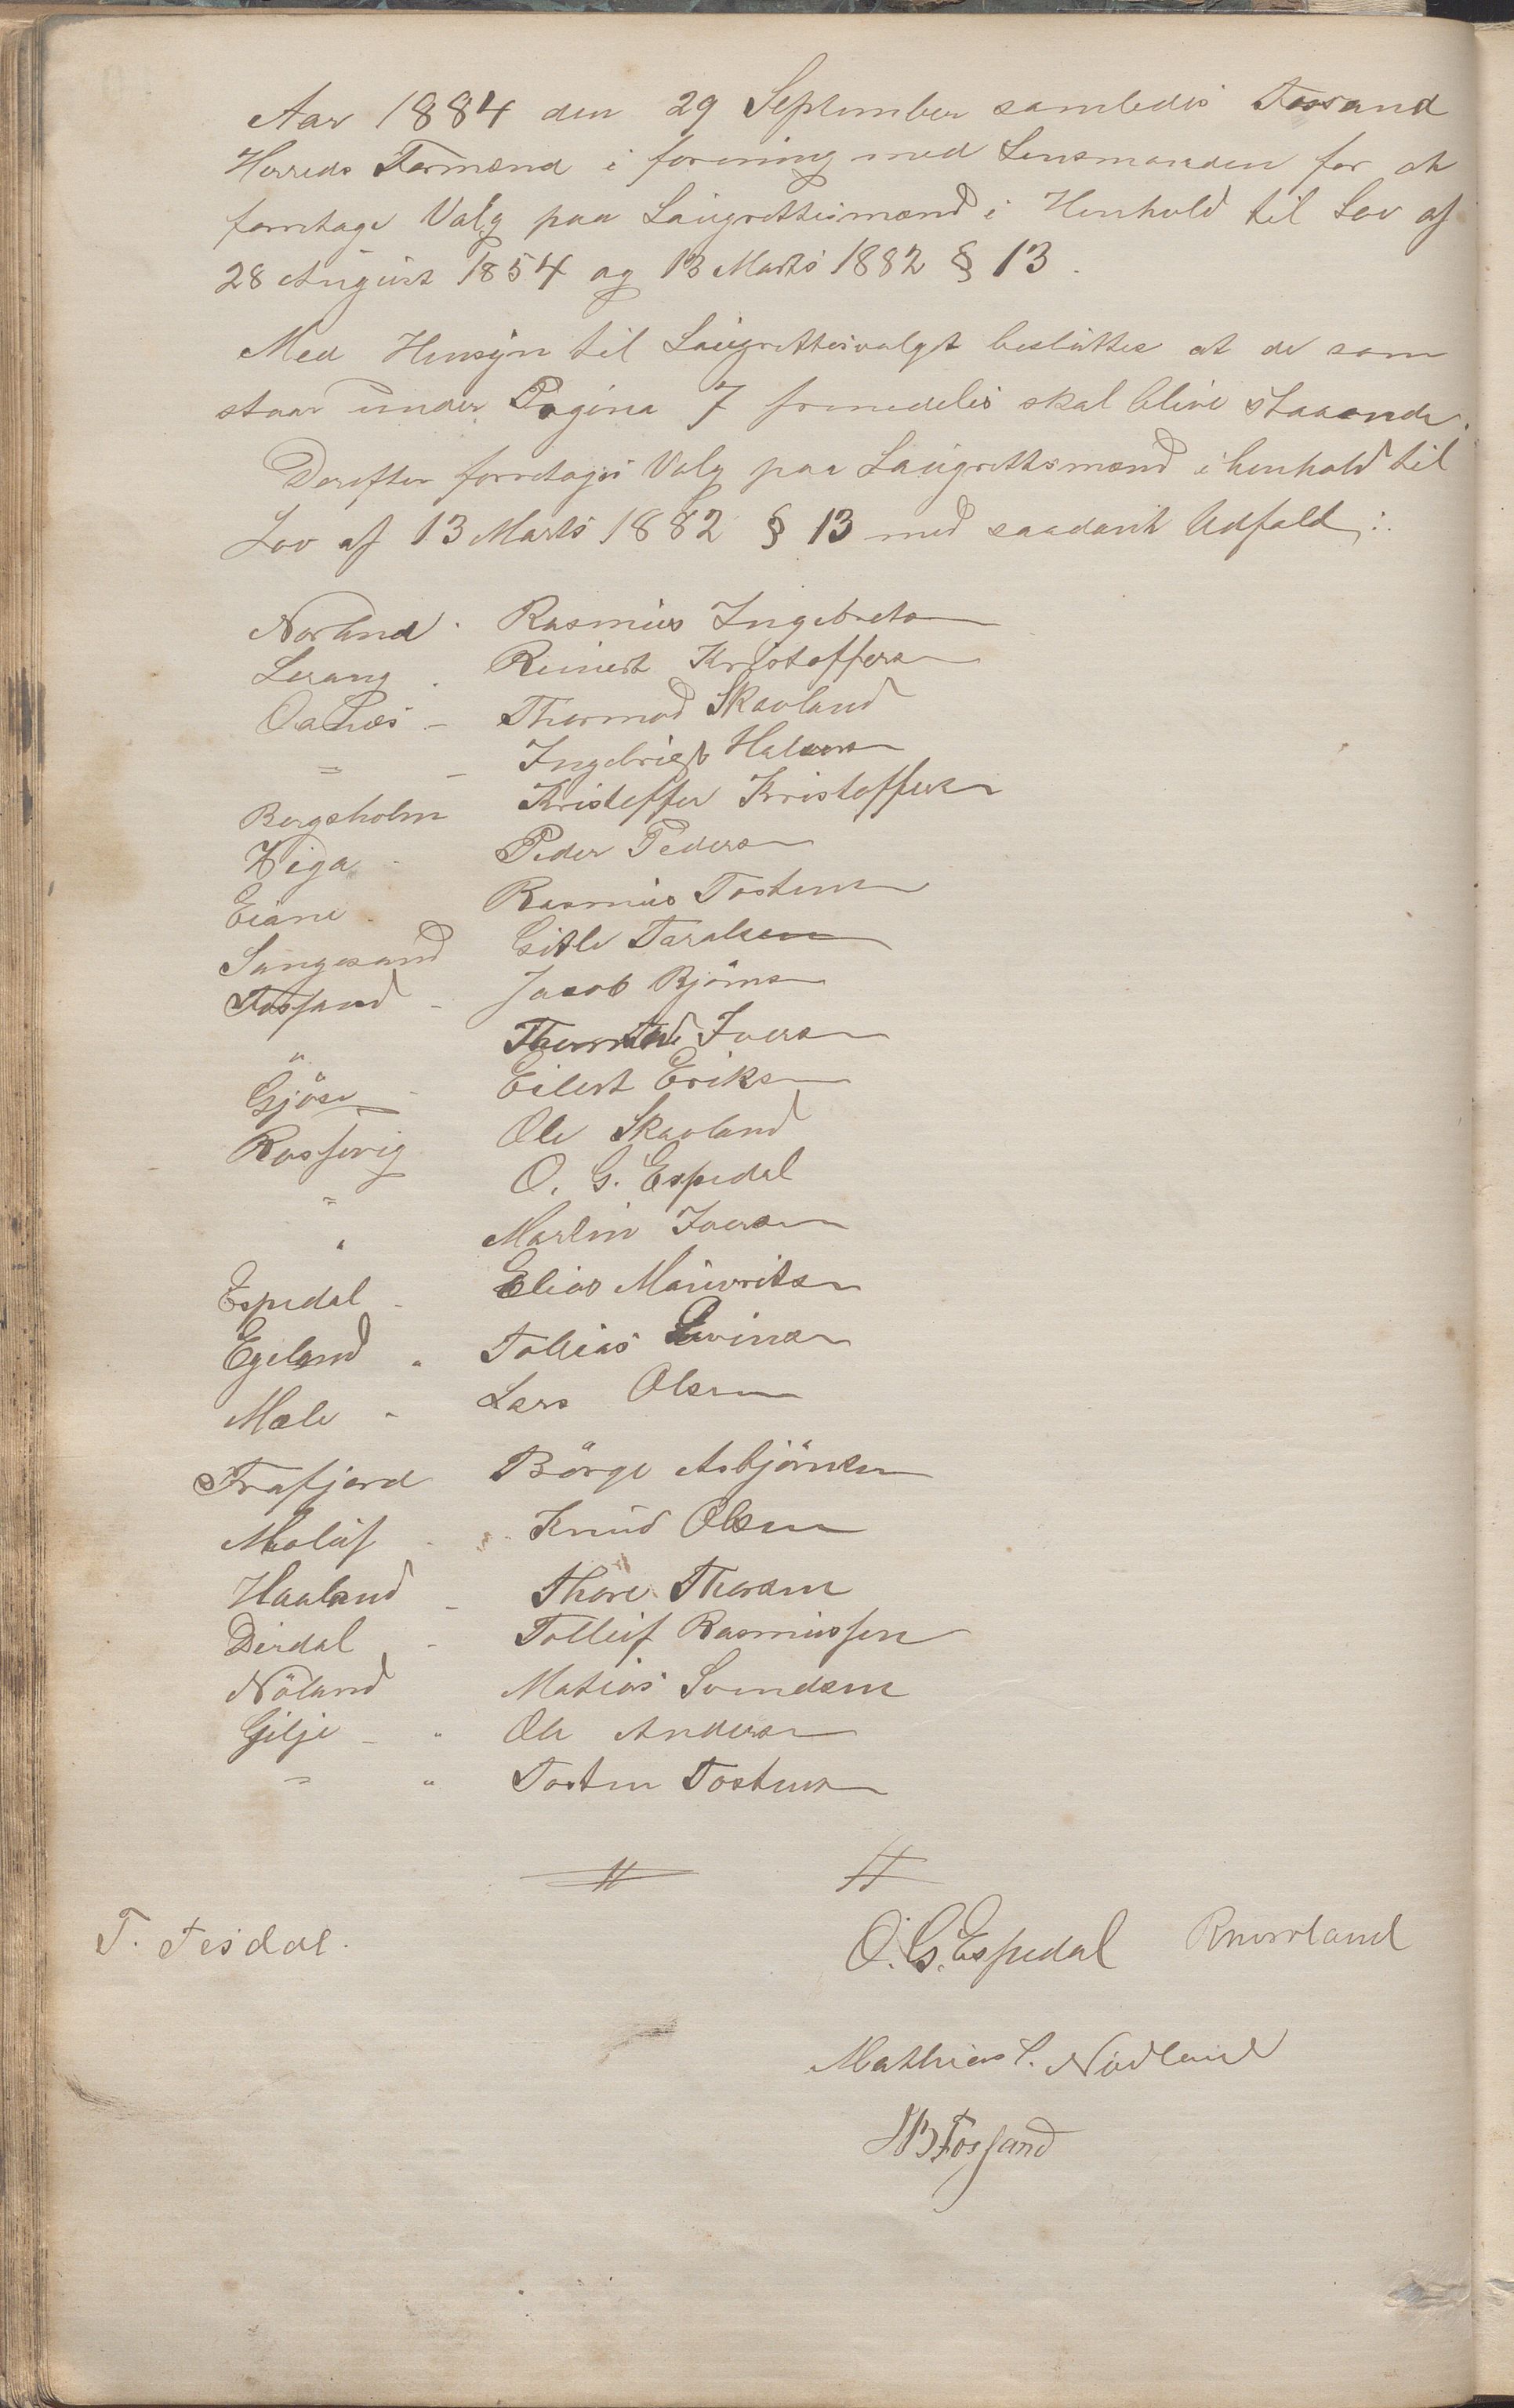 Aar 1884 den 29 September samledes Fossand
Herreds Formænd i forening med Lensmanden for at
forretage Valg paa Laugrettesmænd i Henhold til Lov af
28 August 1854 og 13 Marts 1882 § 13.
Med Hensyn til Laugrettesvalget besluttes at de som
staar under Pagina 7 fremdeles skal blive staaende.
Derefter forretoges Valg paa Laugrettsmænd i henhold til
Lov af 13 Marts 1882 § 13 med saadant Udfald:
Norland - Rasmus Ingebretsen
Lerang - Reinert Kristoffersen
Oanes - Thormod Skavland
" - Ingebrigt Halvorsen
Bergsholm Kristoffer Kristoffersen
Peder Pedersen
Eiane - Rasmus Tostensen
Sungesand Gitle Taralsen
Fossand - Jacob Bjørnsen
" Iversen
Gjøse - Eilert Eriksen
Rossevig Ole Skavland
" O. G. Espedal
" Martin Iversen
Espedal - Elias Mauritsen
Egeland " Tobias
Mæle - Lars Olsen
Frafjord Börge Asbjörnsen
Molauf - Knud Olsen
Haaland - Thore Thorsen
Dirdal - Tolleif Rasmussen
Nöland Matias Svendsen
Gilje - " Ole Andersen
" " Tosten Tostensen
T. Tesdal.
O. G. Espedal Rnorland
Mathias S. Nödland
JB Fossand